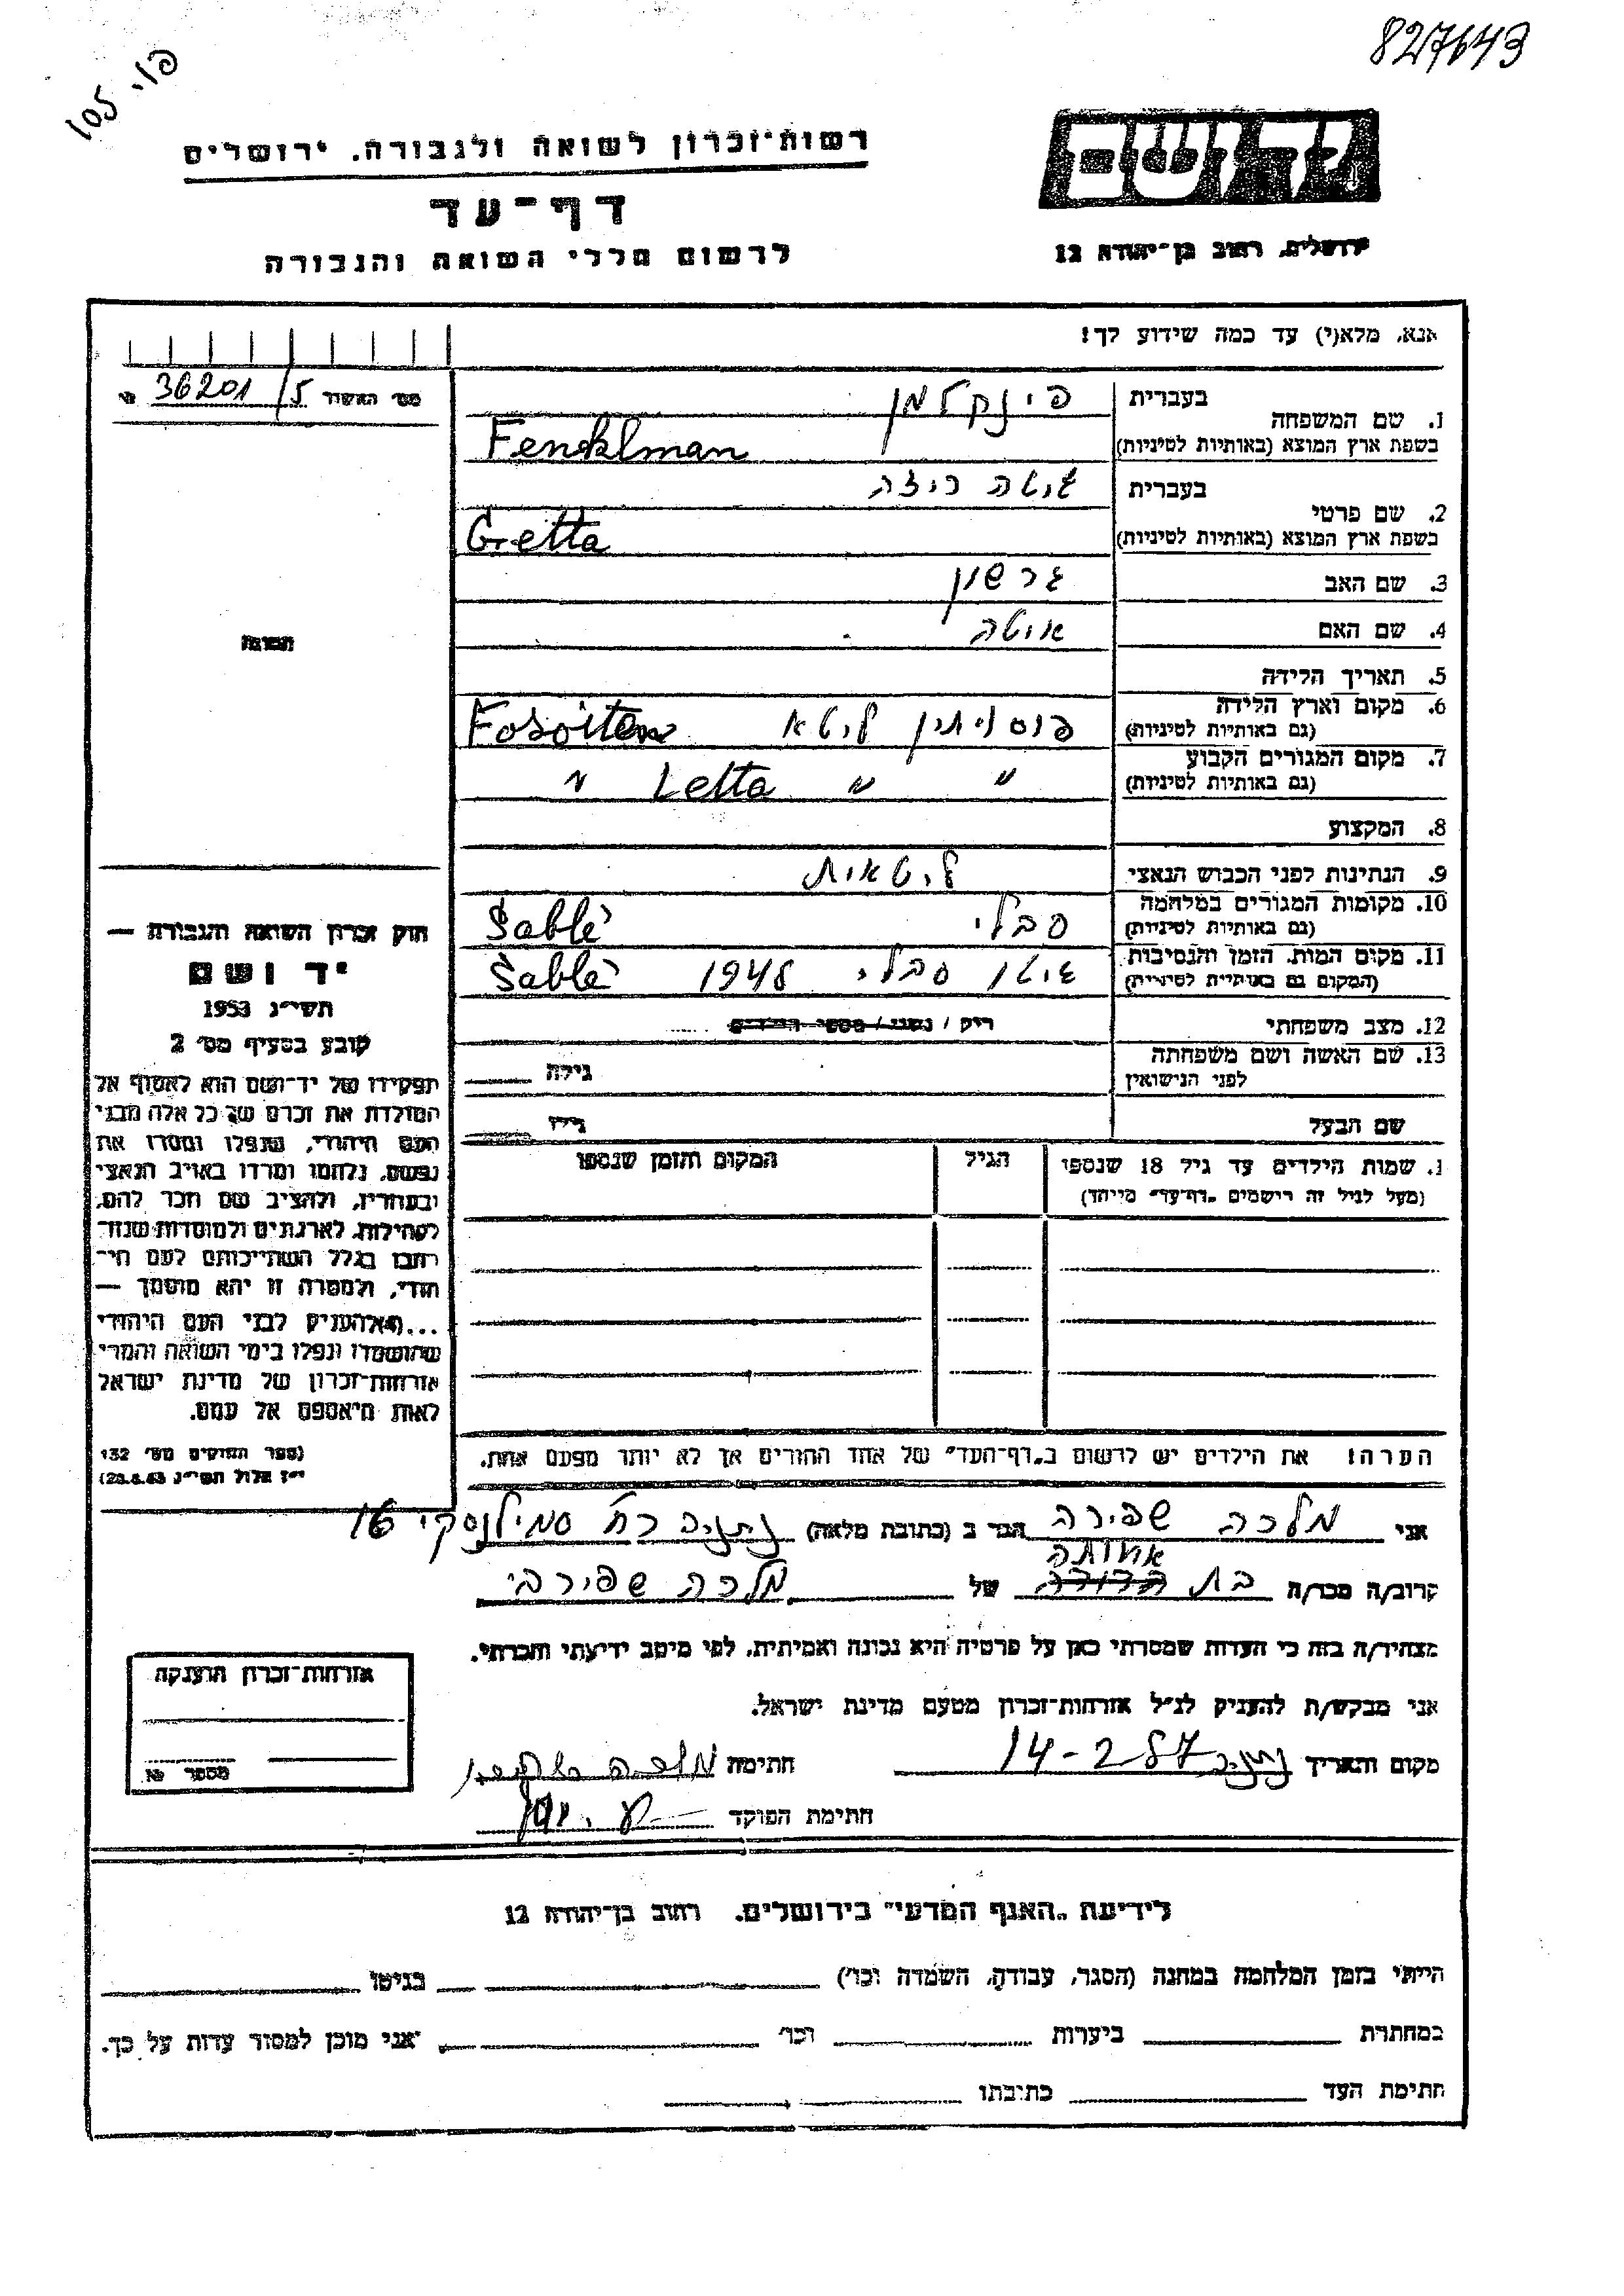 827643
פ/י 105
רשות־זכרון לשואה ולגבורה, ירושלים
יד ושם
דף־עד
לרשום חללי השואה והגבורה
ירושלים, רחוב בן־יהודה 12
אנא, מלא(י) עד כמה שידוע לך!
מס׳ האשור 36201/5
1. שם המשפחה
בעברית פינקלמן
בשפת ארץ המוצא (באותיות לטיניות) Fencklman
2. שם פרטי
בעברית גיטה ריזה
בשפת ארץ המוצא (באותיות לטיניות) Gretta
3. שם האב גרשון
4. שם האם איטה
התמונה
5. תאריך הלידה
6. מקום וארץ הלידה פוסויתין ליטא Fosoiten
(גם באותיות לטיניות)
7. מקום המגורים הקבוע " " Letta "
(גם באותיות לטיניות)
8. המקצוע
9. הנתינות לפני הכבוש הנאצי ליטאית
10. מקומות המגורים במלחמה סבלי Šablė
(גם באותיות לטיניות)
11. מקום המות, הזמן והנסיבות גיטו סבלי 1945 Šablė
(המקום גם באותיות לטיניות)
12. מצב משפחתי רוק / נשוי / מספר הילדים
13. שם האשה ושם משפחתה גילה
לפני הנישואין
שם הבעל גילו
1. שמות הילדים עד גיל 18 שנספו הגיל המקום והזמן שנספו
(מעל לגיל זה רישמים „דף־עד״ מייחד)
חוק זכרון השואה והגבורה —
יד ושם
תשי״ג 1953
קובע בסעיף מס׳ 2
תפקידו של יד־ושם הוא לאסוף אל
המולדת את זכרם של כל אלה מבני
העם היהודי, שנפלו ומסרו את
נפשם, נלחמו ומרדו באויב הנאצי
ובעוזריו, ולהציב שם וזכר להם,
לקהילות, לארגונים ולמוסדות שנח־
רבו בגלל השתייכותם לעם הי־
הודי, ולמטרה זו יהא מוסמך —
...להעניק לבני העם היהודי
שהושמדו ונפלו בימי השואה והמרי
אזרחות־זכרון של מדינת ישראל
לאות היאספם אל עמם.
(ספר החוקים מס׳ 132
י״ז אלול תשי״ג 28.8.53)
הערה! את הילדים יש לרשום ב„דף־העד״ של אחד ההורים אך לא יותר מפעם אחת.
אני מלכה שפירה הגר ב (כתובת מלאה) נתניה רח׳ סמילנסקי 16
אחותה
קרוב/ה מכר/ה בת הדודה של מלכה שפירבי
מצהיר/ה בזה כי העדות שמסרתי כאן על פרטיה היא נכונה ואמיתית, לפי מיטב ידיעתי והכרתי.
אני מבקש/ת להעניק לנ״ל אזרחות־זכרון מטעם מדינת ישראל.
מקום ותאריך נתניה 14-2 57 חתימה
חתימת הפוקד
אזרחות־זכרון הוענקה
מספר №
לידיעת „האגף המדעי״ בירושלים, רחוב בן־יהודה 12
הייתי בזמן המלחמה במחנה (הסגר, עבודה, השמדה וכו׳) בגיטו
במחתרת ביערות וכו׳ אני מוכן למסור עדות על כך.
חתימת העד כתיבתו